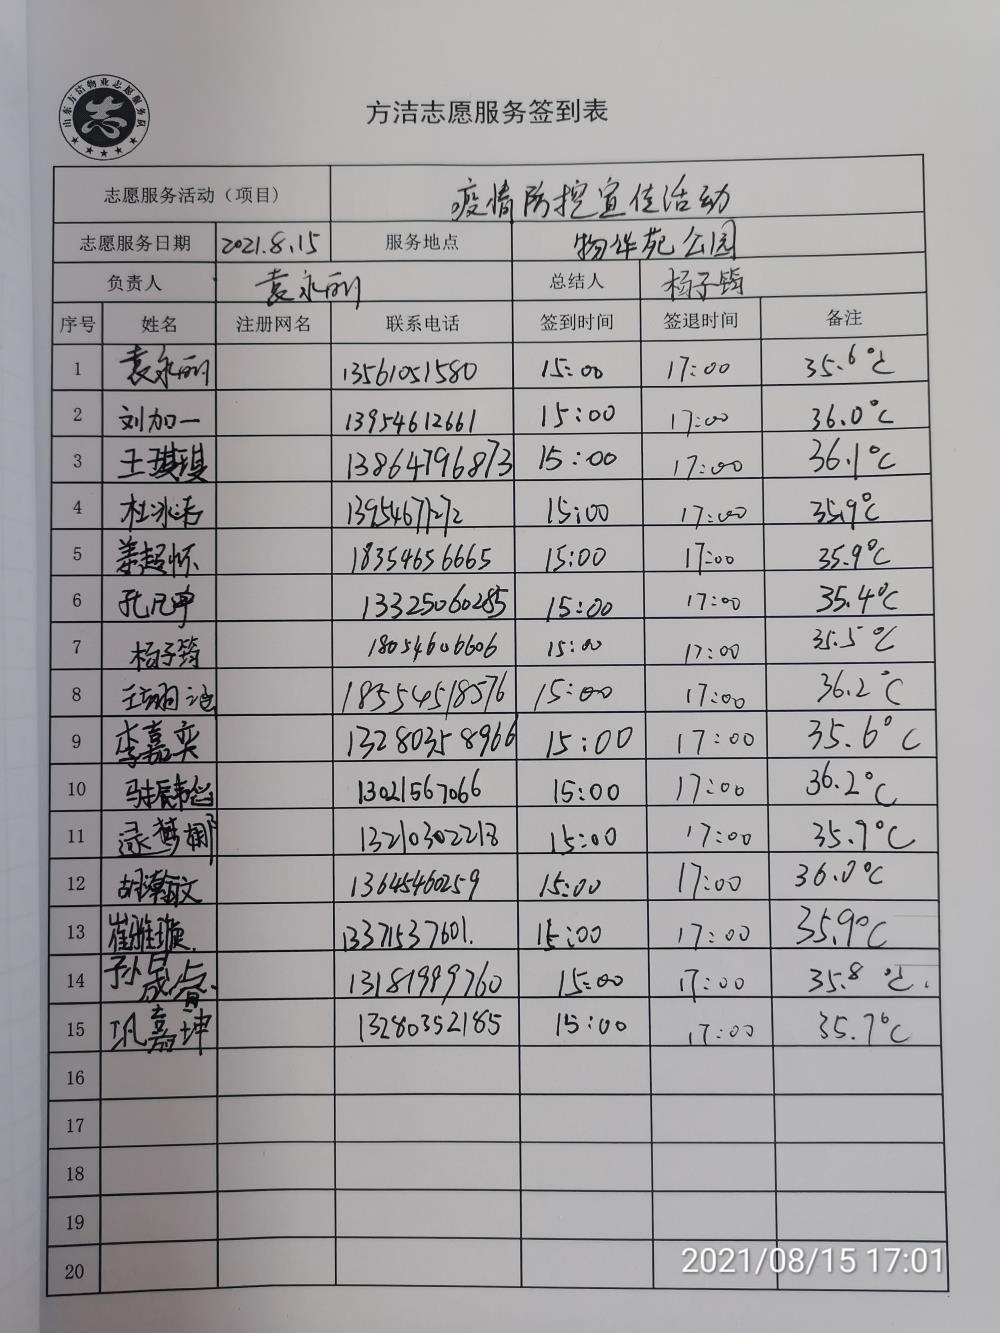 山东方洁物业志愿服务队
志
方洁志愿服务签到表
志愿服务活动（项目） 疫情防控宣传活动
志愿服务日期 2021.8.15 服务地点 物华苑公园
负责人 袁永丽 总结人 杨子筠
序号 姓名 注册网名 联系电话 签到时间 签退时间 备注
1 袁永丽 13561051580 15:00 17:00 35.6℃
2 刘加一 13954612661 15:00 17:00 36.0℃
3 王琪琪 13864796873 15:00 17:00 36.1℃
4 15:00 17:00 35.9℃
5 姜超怀 18354656665 15:00 17:00 35.9℃
6 13325060285 15:00 17:00 35.4℃
7 杨子筠 18054606606 15:00 17:00 35.5℃
8 18354518576 15:00 17:00 36.2℃
9 李嘉奕 13280358966 15:00 17:00 35.6℃
10 13021567066 15:00 17:00 36.2℃
11 13210302218 15:00 17:00 35.7℃
12 胡瀚文 13645460259 15:00 17:00 36.0℃
13 崔雅璇. 13371537601. 15:00 17:00 35.9℃
14 13181999760 15:00 17:00 35.8℃.
15 巩嘉坤 13280352185 15:00 17:00 35.7℃
16
17
18
19
20
2021/08/15 17:01